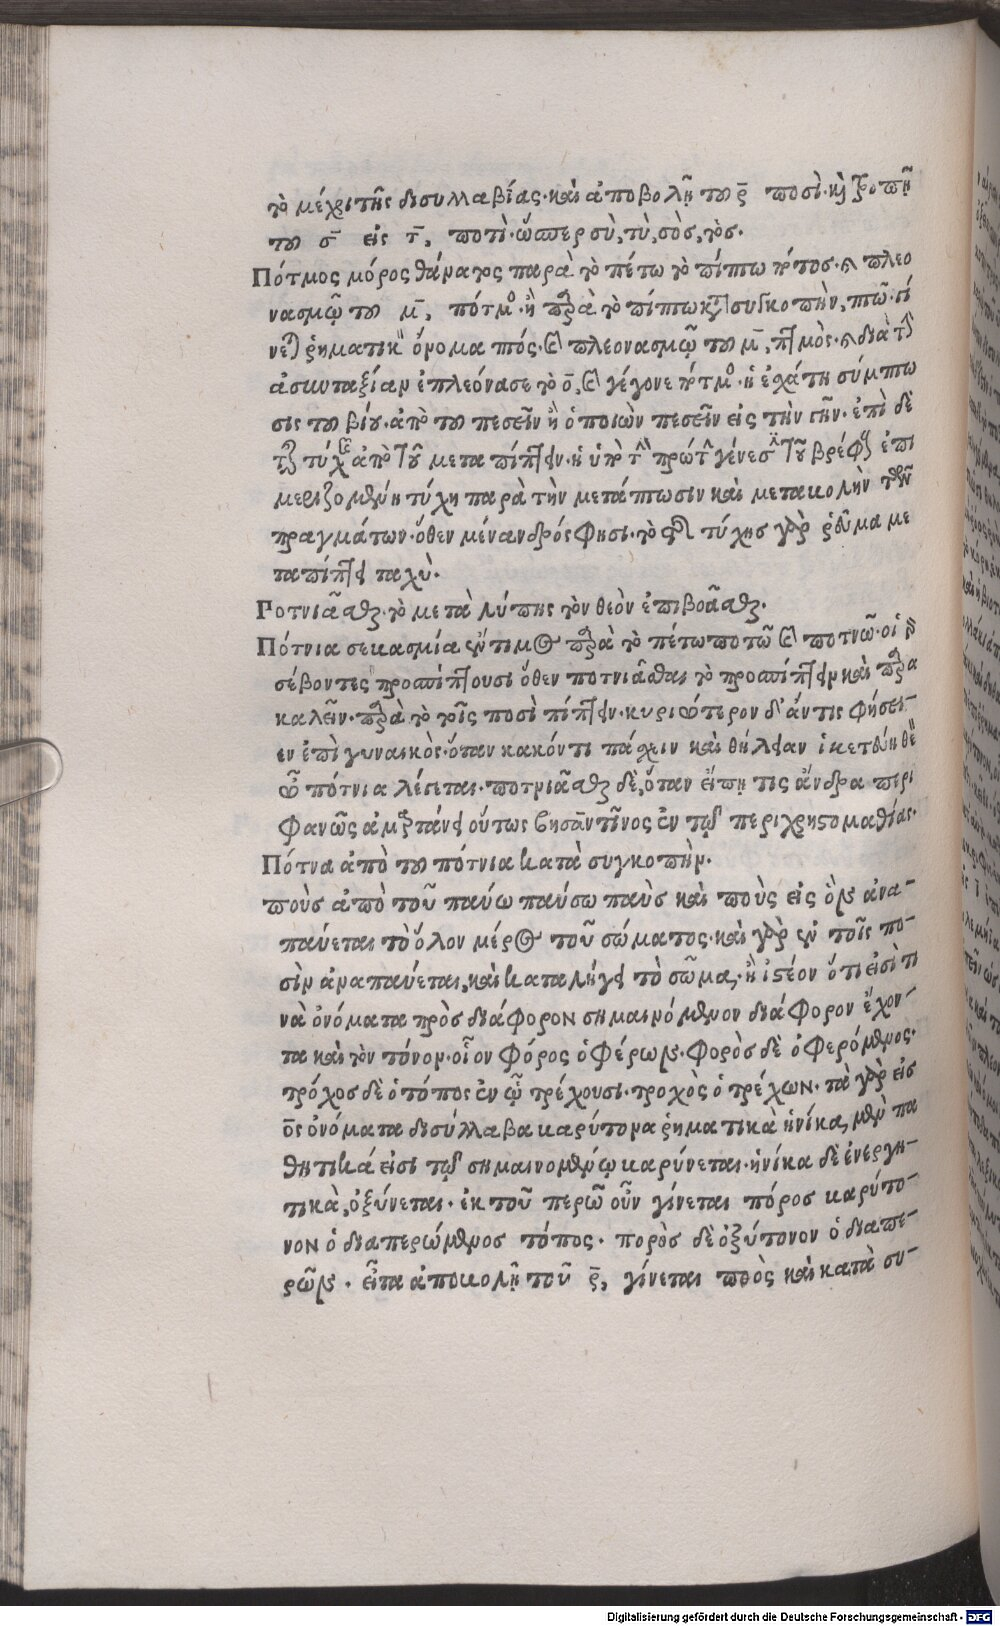 τὸ μέχρι τῆς δισυλλαβίας. καὶ ἀποβολῇ του ρ̄ ποσὶ. κὶ τροπῇ
του σ̄ εἰς τ̄, ποτὶ. ὥσπερ σὺ, τὺ, σὸς, τὸς.
Πότμος μόρος θάνατος παρὰ τὸ πέτω τὸ πίπτω πότος. πλεο
νασμῷ του μ̄, πότμος. ἢ παρὰ τὸ πίπτω κατὰ συγκοπὴν, πτῶ. γί
νεται ῥηματικὸν ὄνομα πτός. καὶ πλεονασμῷ του μ̄, πτμὸς. διὰ τὴν
ἀσυνταξίαν ἐπλεόνασε τὸ ο̄, καὶ γέγονε πότμος. ἡ ἐσχάτη σύμπτω
σις του βίου. ἀπὸ του πεσεῖν ἢ ὁ ποιῶν πεσεῖν εἰς τὴν γῆν. ἐπὶ δὲ
τῆς τύχης ἀπὸ τοῦ μεταπίπτειν. ἡ ὑπὸ τὴν πρώτην γένεσιν τοῦ βρέφους ἐπι
μεριζομένη τύχη παρὰ τὴν μετάπτωσιν καὶ μεταβολὴν τῶν
πραγμάτων. ὅθεν μένανδρός φησι. τὸ τῆς τύχης γὰρ ῥεῦμα με
ταπίπτει ταχὺ.
Ποτνιᾶσθαι. τὸ μετὰ λύπης τὸν θεὸν ἐπιβοᾶσθαι.
Πότνια σεβασμία ἔντιμος παρὰ τὸ πέτω ποτῶ καὶ ποτνῶ. οἱ γὰρ
σέβοντες προσπίπτουσι ὅθεν ποτνιᾶσθαι τὸ προσπίπτειν καὶ παρα
καλεῖν. παρὰ τὸ τοῖς ποσὶ πίπτειν. κυριώτερον δ' ἄν τις φήσει-
εν ἐπὶ γυναικὸς. ὅταν κακόν τι πάσχειν καὶ θήλειαν ἱκετεύη θεὸν
ὦ πότνια λέγεται. ποτνιᾶσθαι δὲ, ὅταν εἴπη τις ἄνδρα περι
φανῶς ἁμαρτάνει οὕτως βησαντῖνος ἐν τῷ περὶ χρηστομαθίας.
Πότνα ἀπὸ του πότνια κατὰ συγκοπὴν.
ποὺς ἀπὸ τοῦ παύω παύσω παὺς καὶ ποὺς εἰς ὃν ἀνα-
παύεται τὸ ὅλον μέρος τοῦ σώματος. καὶ γὰρ ἐν τοῖς πο-
σὶν ἀναπαύεται, καὶ καταλήγει τὸ σῶμα. ἢ ἰστέον ὅτι εἰσὶ τι
νὰ ὀνόματα πρὸς διάφορον σημαινόμενον διάφορον ἔχον-
τα καὶ τὸν τόνον. οἷον φόρος ὁ φέρων. φορὸς δὲ ὁ φερόμενος.
τρόχος δὲ ὁ τόπος ἐν ᾧ τρέχουσι. τροχὸς ὁ τρέχων. τὰ γὰρ εἰς
ο̄ς ὀνόματα δισύλλαβα βαρύτονα ῥηματικὰ ἡνίκα, μὲν πα
θητικά εἰσι τῷ σημαινομένῳ βαρύνεται. ἡνίκα δὲ ἐνεργη-
τικὰ, ὀξύνεται. ἐκ τοῦ περῶ οὖν γίνεται πόρος βαρύτο-
νον ὁ διαπερώμενος τόπος. πορὸς δὲ ὀξύτονον ὁ διαπε-
ρῶν. εἶτα ἀποβολῇ τοῦ ρ̄, γίνεται ποὸς καὶ κατὰ συ-
Digitalisierung gefördert durch die Deutsche Forschungsgemeinschaft - DFG